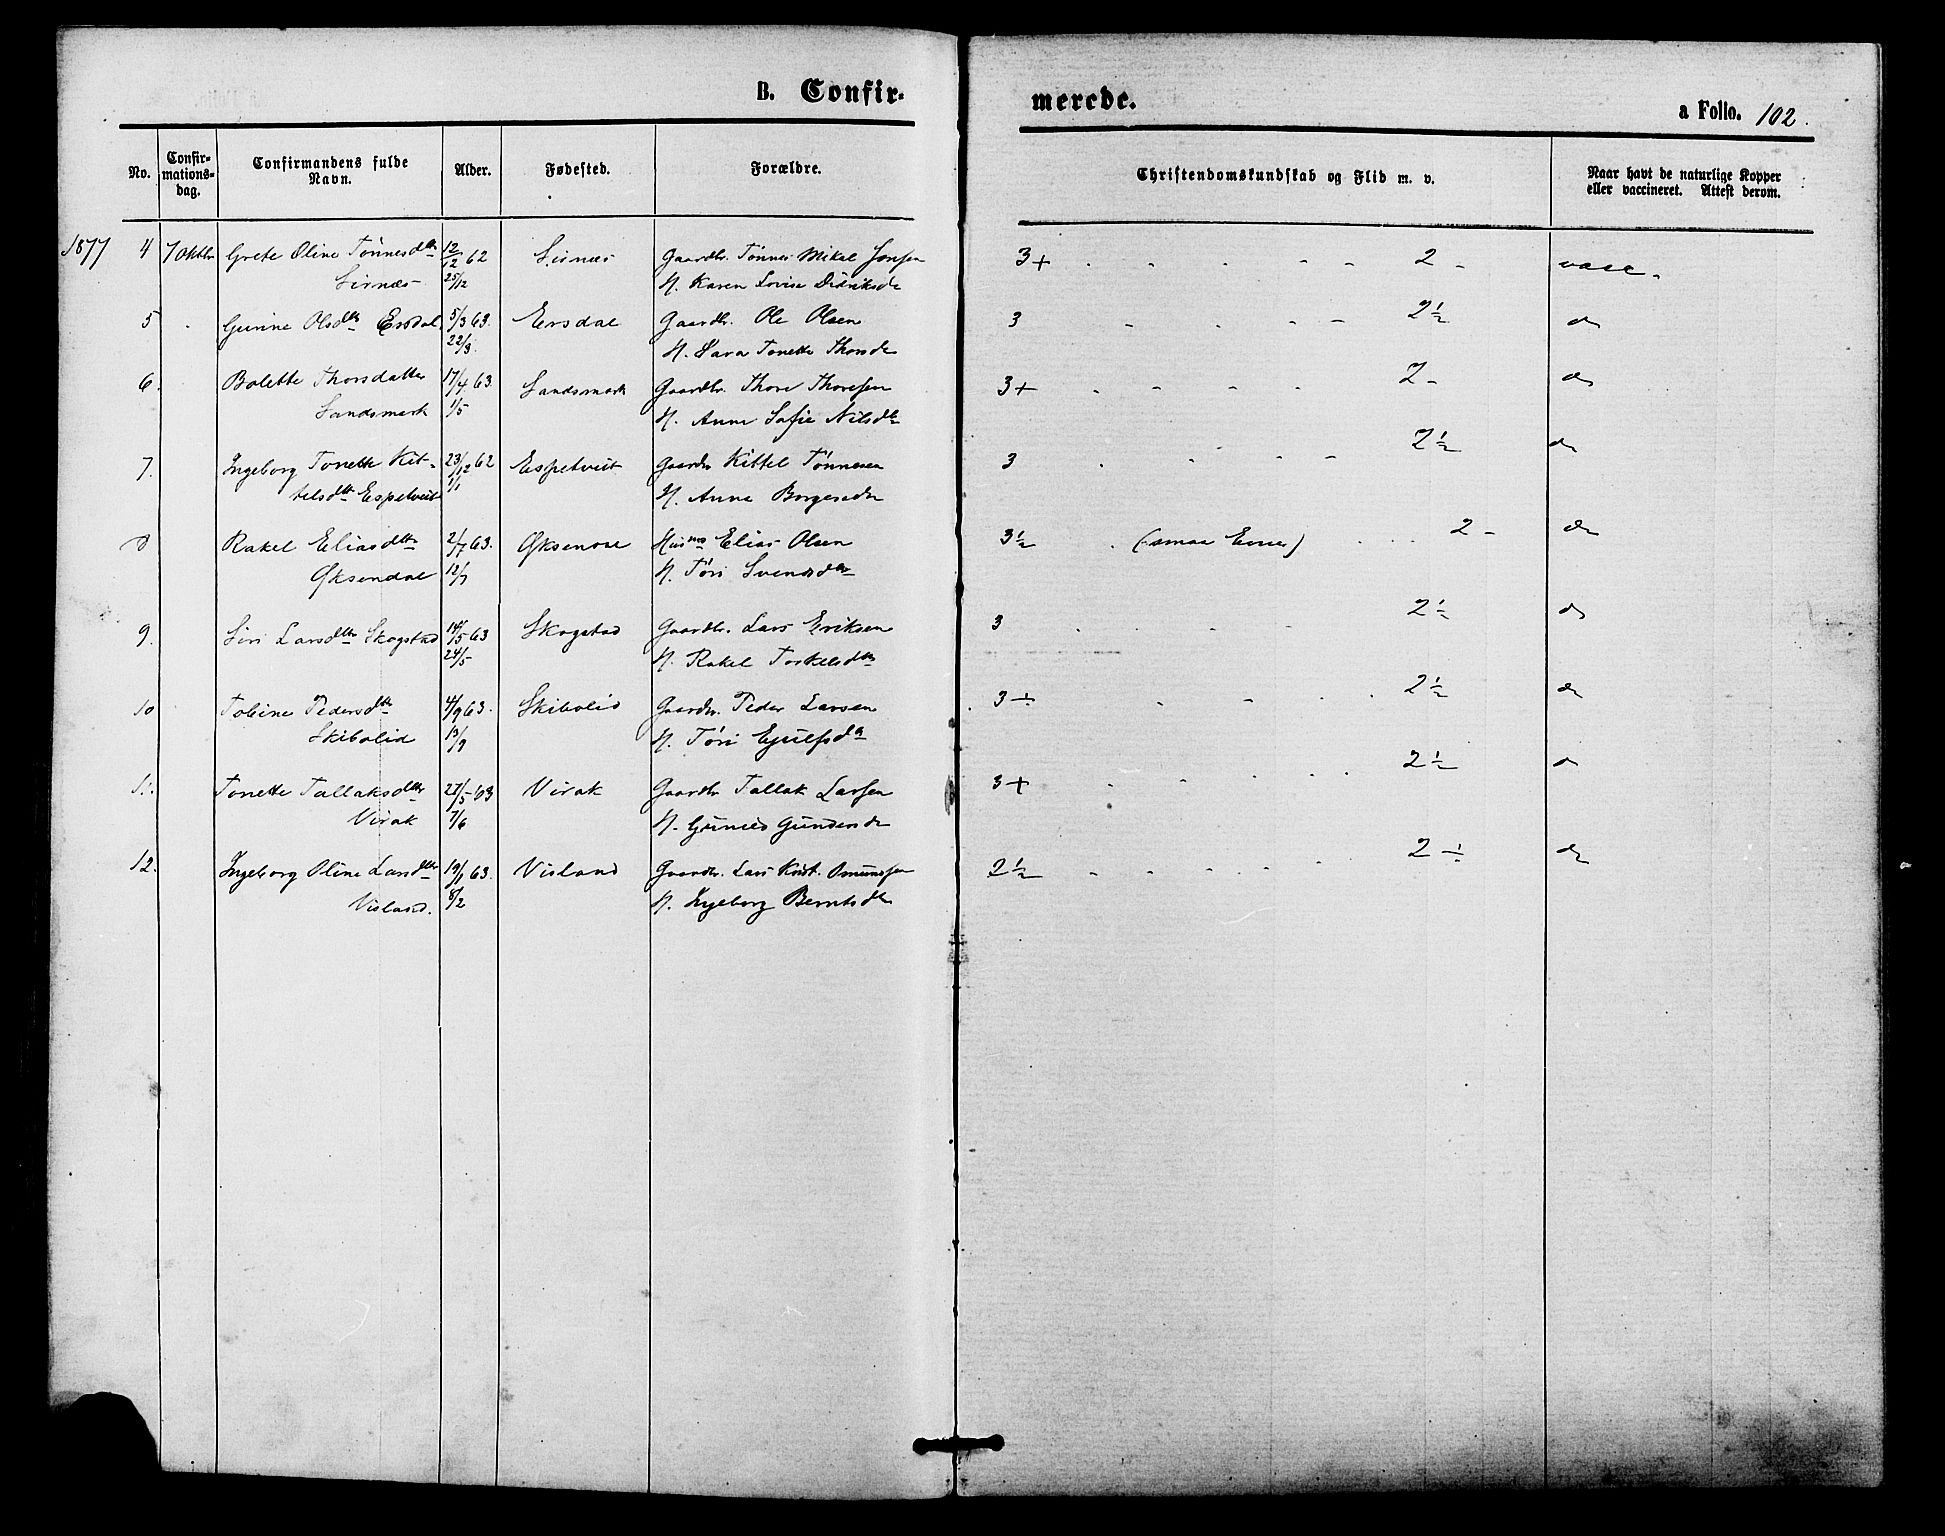 B. Confir-
merede.
a Folio. 102.
No.
Confir-
mations-
dag.
Confirmandens fulde
Navn.
Alder.
Fødested.
Forældre.
Christendomskundskab og Flid m. v.
Naar havt de naturlige Kopper
eller vaccineret. Attest derom.
1877 4 7 Oktbr Grete Oline Tønnesdtr 12/12 62 Sirnæs Gaardbr. Tønnes Mikal Jonsen 3+ - - - - - 2 - vacc.
Sirnæs 25/12 H. Karen Lovise Didriksdr
5 Gurine Olsdtr Ersdal 5/3 63. Ersdal Gaardbr. Ole Olsen 3 - - - - 2½ do
22/3. H. Sara Tonette Thorsdr
6. Bolette Thorsdatter 17/4 63. Sandsmark Gaardbr. Thore Thoresen 3+ - - - - 2 - do
Sandsmark 1/5 H. Anne Sofie Nilsdtr
7. Ingeborg Tonette Kit- 23/12 62 Espetveit Gaardbr Kittel Tønnesen 3 - - - - 2½ do
telsdtr Espetveit 1/1 H. Anne Borgesdr
8 Rakel Eliasdtr 2/7 63. Øksen Husmd Elias Olsen 3½ . (smaa Evner) . . . 2 - do
Øksendal 12/7 H. Tøri Svensdtr
9. Siri Larsdtr Skogstad 14/5 63 Skogstad Gaardbr. Lars Eriksen 3 - - - - 2½ do
24/5 H. Rakel Torkelsdtr
10 Tobine Pedersdtr 4/9 63. Skibolid Gaardbr. Peder Larsen 3 ÷ - - - - 2½ do
Skibolid 13/9 H. Tøri Ejulfsdtr
11. Tonette Tallaksdtr 27/5 63 Virak Gaardbr Tallak Larsen 3+ - - - - - 2½ do
Virak 7/6 H. Gunild Gundersdr
12. Ingeborg Oline Larsdtr 19/1 63. Visland Gaardbr. Lars Krist. Omundsen 2½ - - - - - 2 ÷ do
Visland. 8/2 H. Ingeborg Berntsdtr